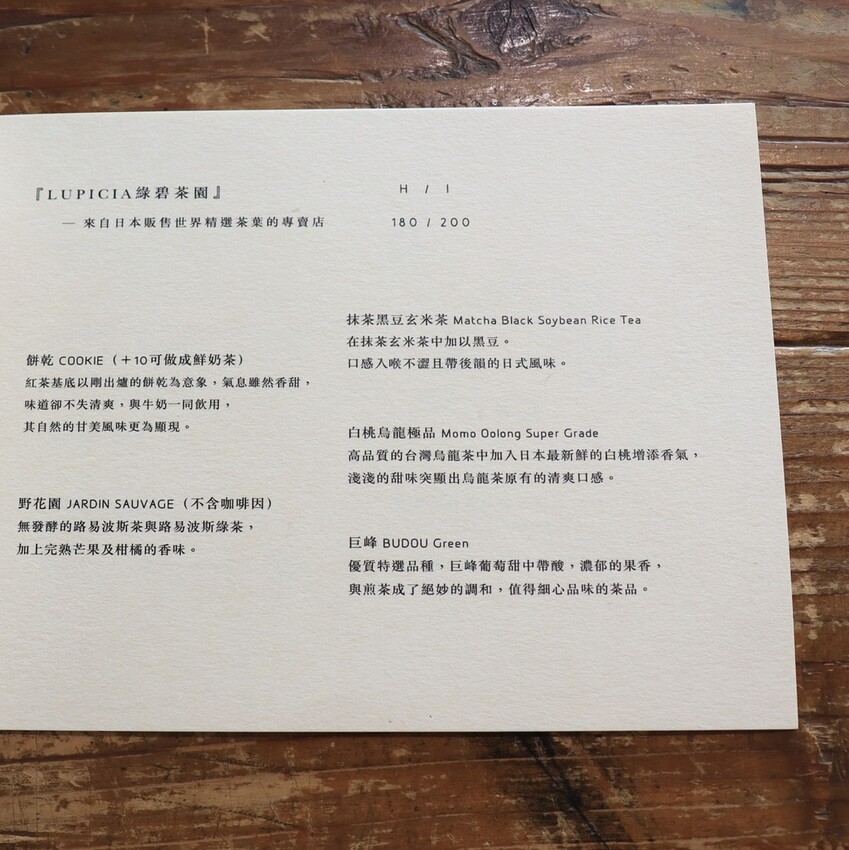 『LUPICIA綠碧茶園』
— 來自日本販售世界精選茶葉的專賣店
H / I
180 / 200
餅乾 COOKIE（＋10可做成鮮奶茶）
紅茶基底以剛出爐的餅乾為意象，氣息雖然香甜，
味道卻不失清爽，與牛奶一同飲用，
其自然的甘美風味更為顯現。
野花園 JARDIN SAUVAGE（不含咖啡因）
無發酵的路易波斯茶與路易波斯綠茶，
加上完熟芒果及柑橘的香味。
抹茶黑豆玄米茶 Matcha Black Soybean Rice Tea
在抹茶玄米茶中加以黑豆。
口感入喉不澀且帶後韻的日式風味。
白桃烏龍極品 Momo Oolong Super Grade
高品質的台灣烏龍茶中加入日本最新鮮的白桃增添香氣，
淺淺的甜味突顯出烏龍茶原有的清爽口感。
巨峰 BUDOU Green
優質特選品種，巨峰葡萄甜中帶酸，濃郁的果香，
與煎茶成了絕妙的調和，值得細心品味的茶品。